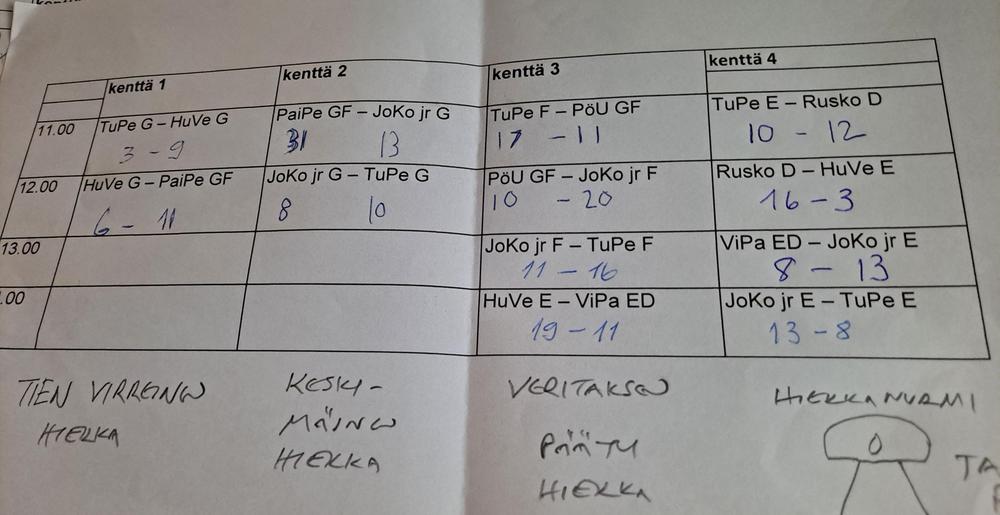 kenttä 1 kenttä 2 kenttä 3 kenttä 4
11.00 TuPe G – HuVe G PaiPe GF – JoKo jr G TuPe F – PöU GF TuPe E – Rusko D
3 - 9 31 13 17 - 11 10 - 12
12.00 HuVe G – PaiPe GF JoKo jr G – TuPe G PöU GF – JoKo jr F Rusko D – HuVe E
6 - 11 8 10 10 - 20 16 - 3
13.00 JoKo jr F – TuPe F ViPa ED – JoKo jr E
11 - 16 8 - 13
.00 HuVe E – ViPa ED JoKo jr E – TuPe E
19 - 11 13 - 8
TIEN VIRREINEN KESKI- VERITAKSEN HIEKKANURMI
HIEKKA MÄINEN PÄÄTY
HIEKKA HIEKKA
TA